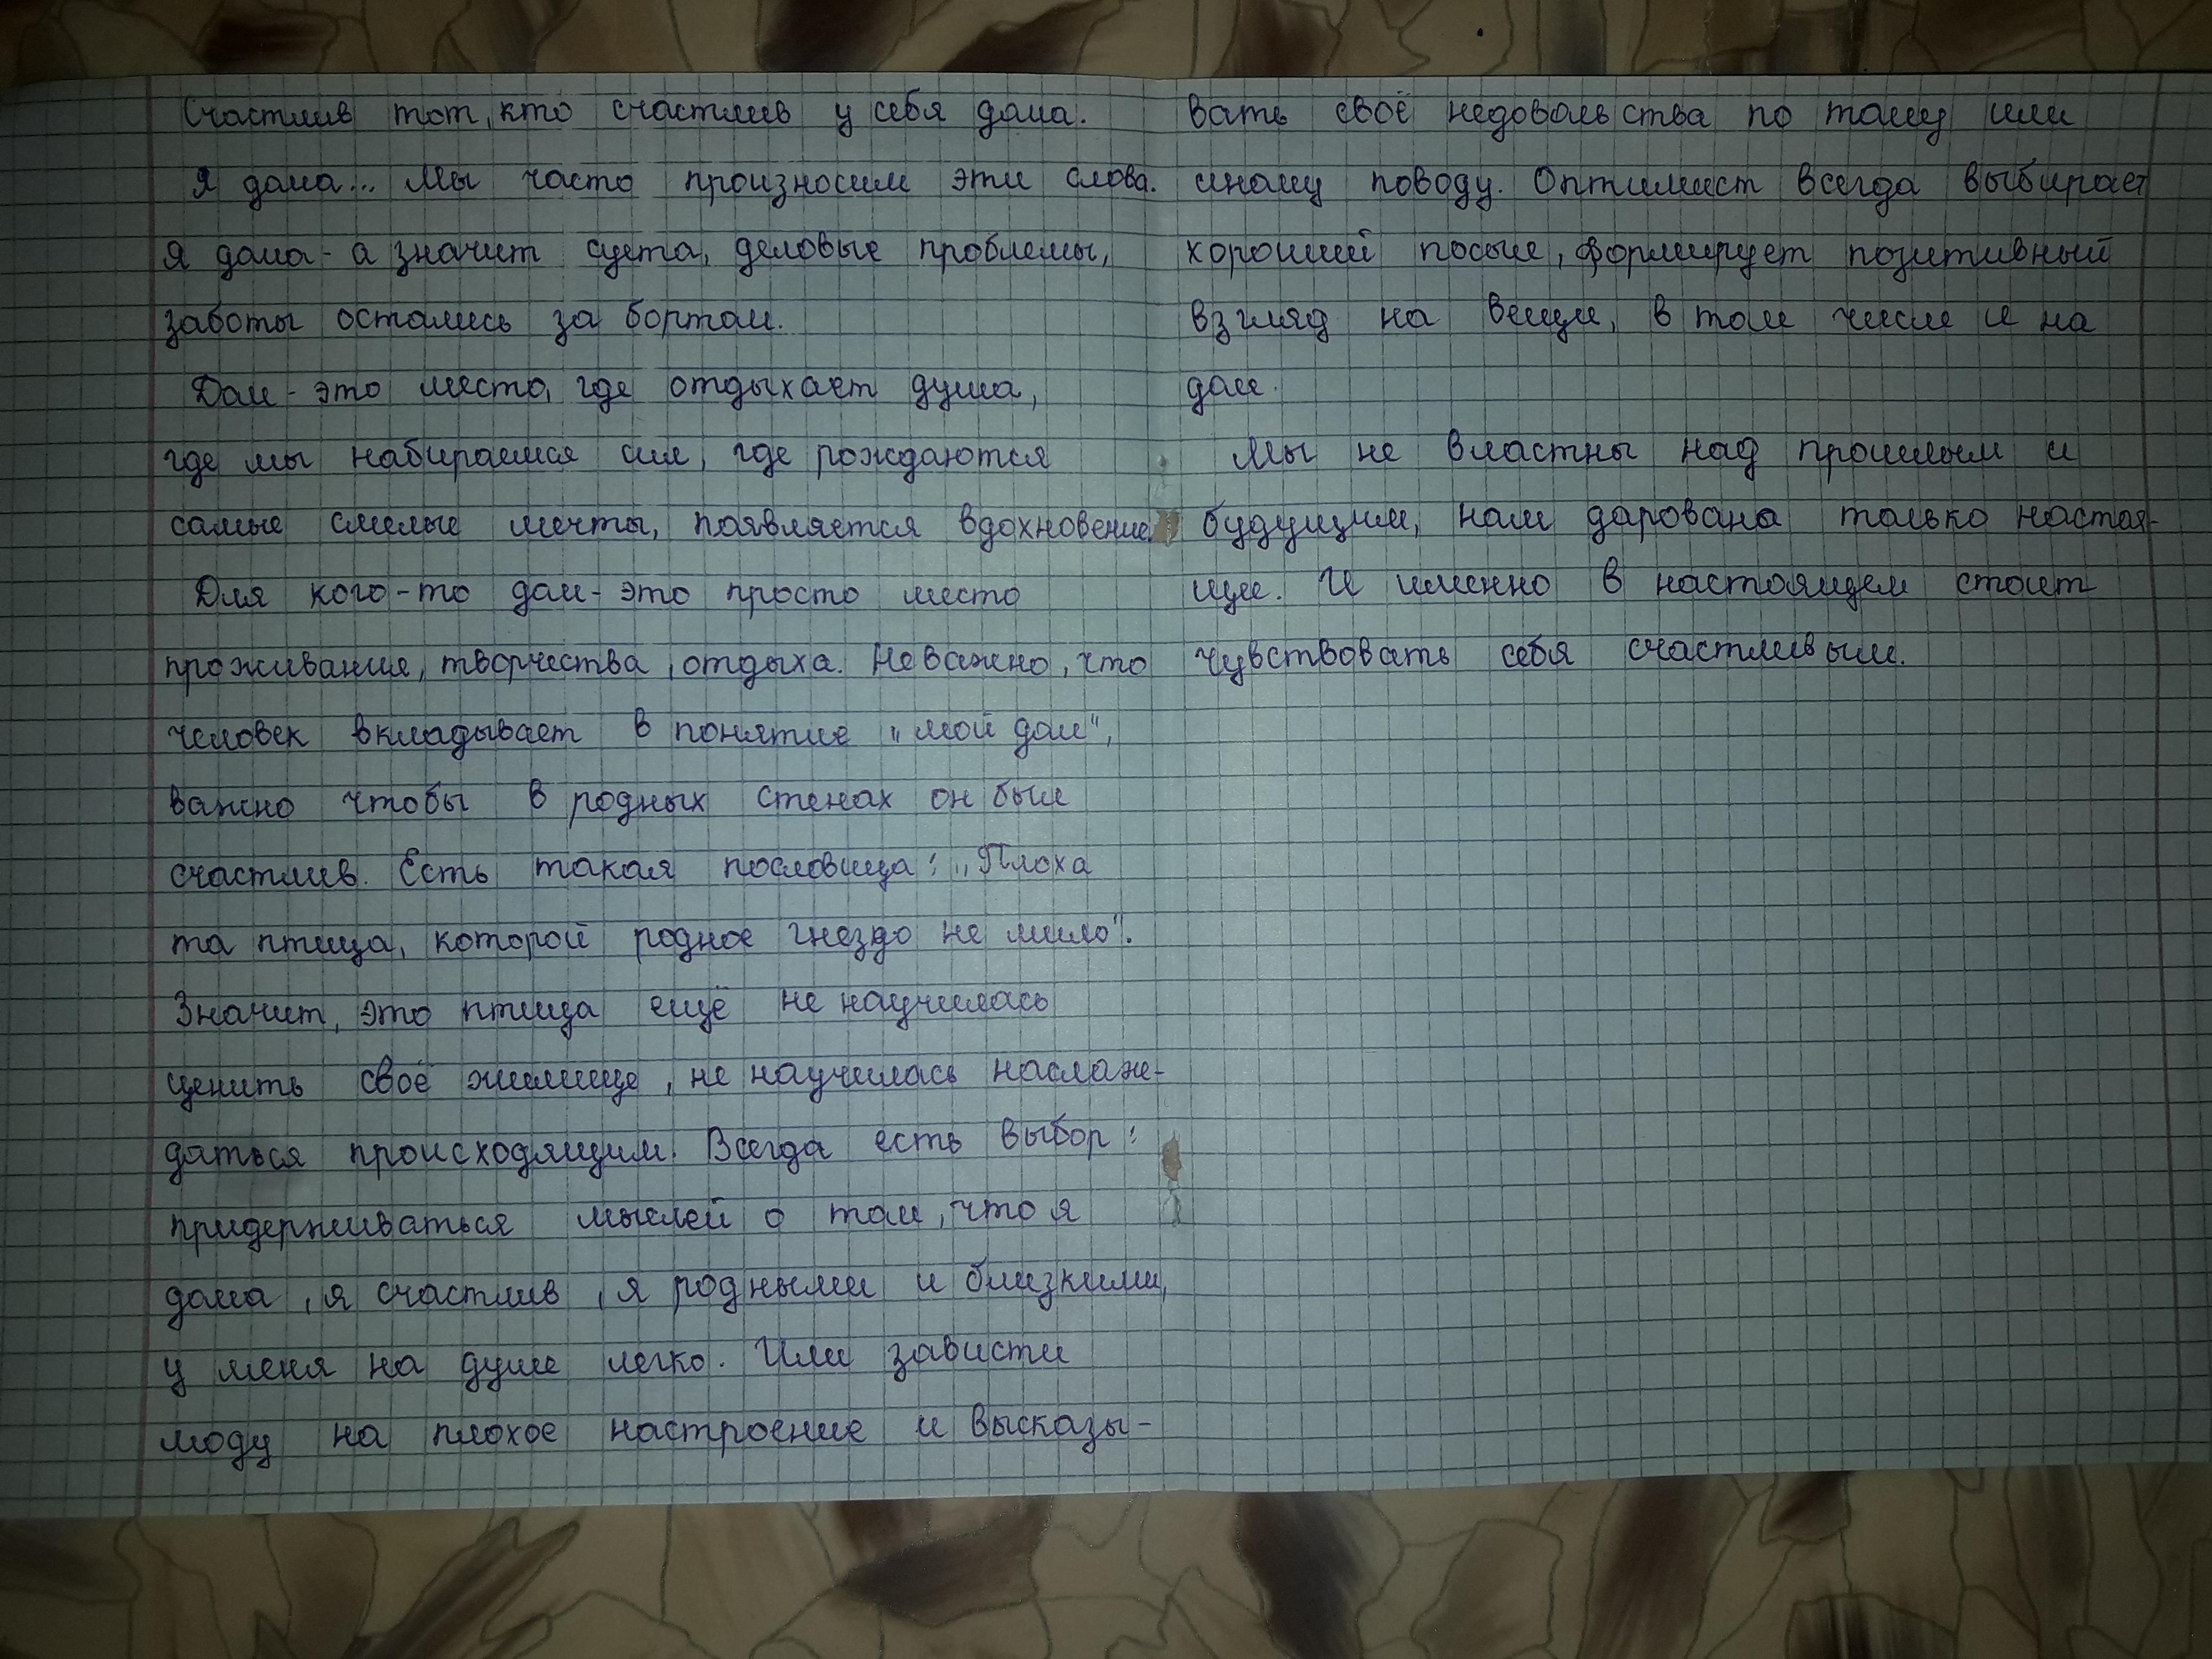 Счастлив тот, кто счастлив у себя дома.
Я дома... Мы часто произносим эти слова.
Я дома - а значит суета, деловые проблемы,
заботы остались за бортом.
Дом - это место, где отдыхает душа,
где мы набираемся сил, где рождаются
самые смелые мечты, появляется вдохновение.
Для кого-то дом - это просто место
проживания, творчества, отдыха. Неважно, что
человек вкладывает в понятие „мой дом",
важно чтобы в родных стенах он был
счастлив. Есть такая пословица: „Плоха
та птица, которой родное гнездо не мило".
Значит, это птица ещё не научилась
ценить своё жилище, не научилась наслаж-
даться происходящим. Всегда есть выбор:
придерживаться мыслей о том, что я
дома, я счастлив, я родными и близкими,
у меня на душе легко. Или завести
моду на плохое настроение и высказы-
вать своё недовольства по тому или
иному поводу. Оптимист всегда выбирает
хороший посыл, формирует позитивный
взгляд на вещи, в том числе и на
дом.
Мы не властны над прошлым и
будущим, нам даровано только настоя-
щее. И именно в настоящем стоит
чувствовать себя счастливым.